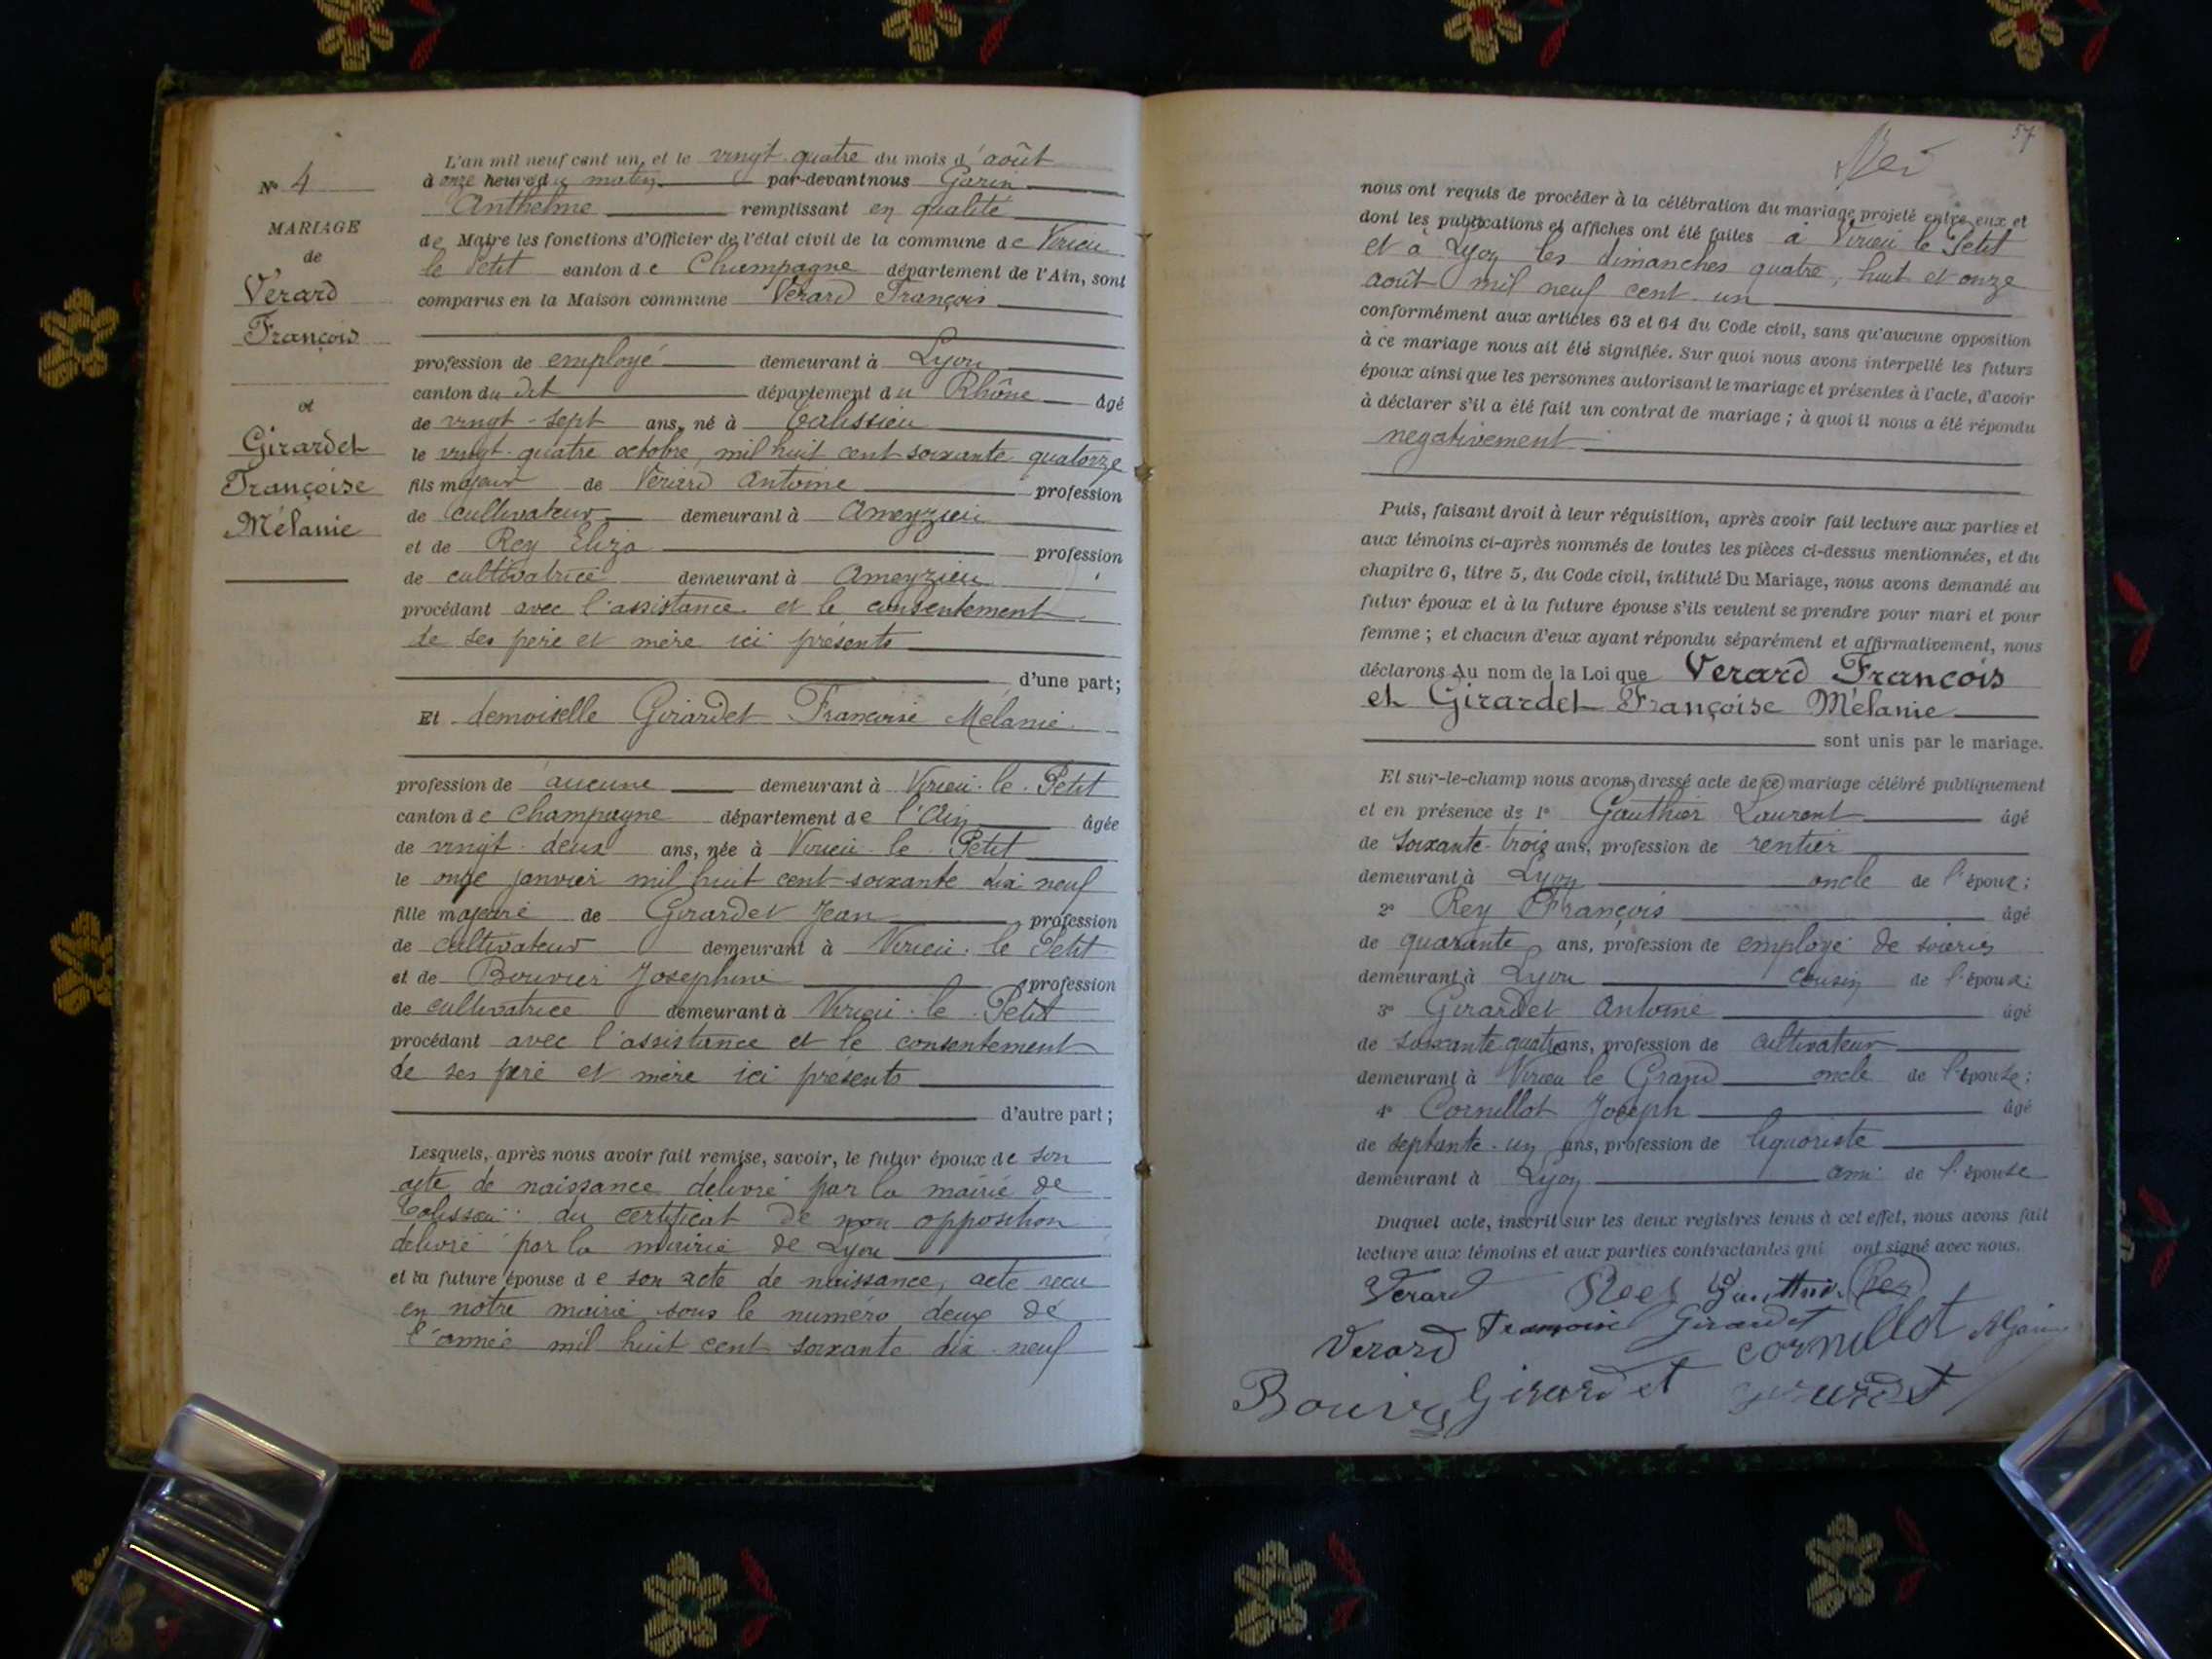 Nº 4
MARIAGE
de
Verard
François
et
Girardet
Françoise
Mélanie
L'an mil neuf cent un, et le vingt-quatre du mois d'août
à onze heures du matin par-devant nous Garin
Anthelme remplissant en qualité
de Maire les fonctions d'Officier de l'état civil de la commune de Virieu
le Petit canton de Champagne département de l'Ain, sont
comparus en la Maison commune Verard François
profession de employé demeurant à Lyon
canton du dit département du Rhône âgé
de vingt-sept ans, né à Talissieu
le vingt-quatre octobre, mil huit cent soixante quatorze
fils majeur de Verard Antoine profession
de cultivateur demeurant à Ameyzieu
et de Rey Eliza profession
de cultivatrice demeurant à Ameyzieu
procédant avec l'assistance et le consentement
de ses père et mère ici présents
d'une part;
Et demoiselle Girardet Françoise Mélanie
profession de aucune demeurant à Virieu-le-Petit
canton de Champagne département de l'Ain âgée
de vingt-deux ans, née à Virieu-le-Petit
le onze janvier mil huit cent-soixante dix neuf
fille majeure de Girardet Jean profession
de cultivateur demeurant à Virieu-le Petit
et de Bouvier Joséphine profession
de cultivatrice demeurant à Virieu-le-Petit
procédant avec l'assistance et le consentement
de ses père et mère ici présents
d'autre part;
Lesquels, après nous avoir fait remise, savoir, le futur époux de son
acte de naissance délivré par la mairie de
Talissieu du certificat de non opposition
délivré par la mairie de Lyon
et la future épouse de son acte de naissance, acte reçu
en notre mairie sous le numéro deux de
l'année mil huit cent soixante dix-neuf
57
nous ont requis de procéder à la célébration du mariage projeté entre eux, et
dont les publications et affiches ont été faites à Virieu le Petit
et à Lyon les dimanches quatre, huit et onze
août mil neuf cent un
conformément aux articles 63 et 64 du Code civil, sans qu'aucune opposition
à ce mariage nous ait été signifiée. Sur quoi nous avons interpellé les futurs
époux ainsi que les personnes autorisant le mariage et présentes à l'acte, d'avoir
à déclarer s'il a été fait un contrat de mariage; à quoi il nous a été répondu
negativement
Puis, faisant droit à leur réquisition, après avoir fait lecture aux parties et
aux témoins ci-après nommés de toutes les pièces ci-dessus mentionnées, et du
chapitre 6, titre 5, du Code civil, intitulé Du Mariage, nous avons demandé au
futur époux et à la future épouse s'ils veulent se prendre pour mari et pour
femme; et chacun d'eux ayant répondu séparément et affirmativement, nous
déclarons Au nom de la Loi que Verard François
et Girardet Françoise Mélanie
sont unis par le mariage.
Et sur-le-champ nous avons dressé acte de ce mariage célébré publiquement
et en présence de 1º Gauthier Laurent âgé
de soixante-trois ans, profession de rentier
demeurant à Lyon oncle de l'époux;
2º Rey François âgé
de quarante ans, profession de employé de soieries
demeurant à Lyon cousin de l'époux;
3º Girardet Antoine âgé
de soixante quatre ans, profession de cultivateur
demeurant à Virieu le Grand oncle de l'épouse;
4º Cornillot Joseph âgé
de septante-un ans, profession de liquoriste
demeurant à Lyon ami de l'épouse
Duquel acte, inscrit sur les deux registres tenus à cet effet, nous avons fait
lecture aux témoins et aux parties contractantes qui ont signé avec nous.
Verard Rey Gauthier Rey
Verard Françoise Girardet Cornillot
Bouvier Girardet Girardet